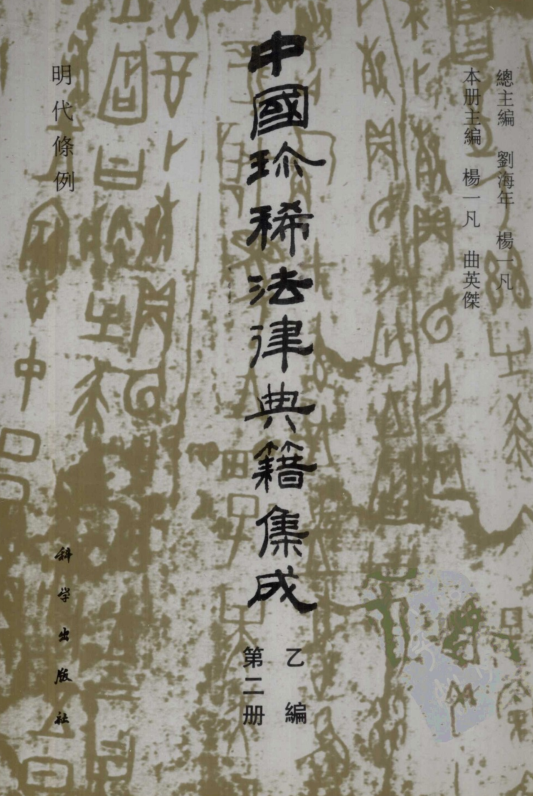 總主編 劉海年 楊一凡
本册主編 楊一凡 曲英傑
中國珍稀法律典籍集成
乙編
第二册
明代條例
科学出版社